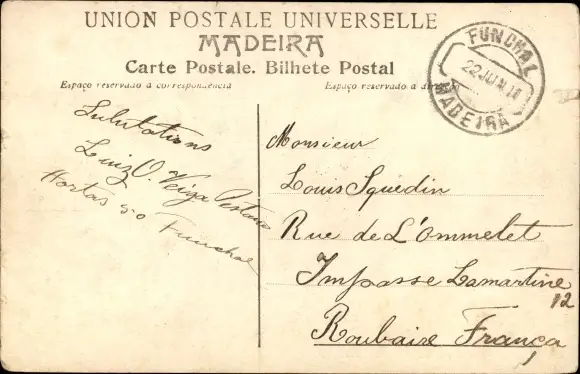 UNION POSTALE UNIVERSELLE
MADEIRA
Carte Postale. Bilhete Postal
Espaço reservado á correspondencia
Espaço reservado a
FUNCHAL
22 JUN
MADEIRA
Salutations
Luiz O. Veiga Pestana
Hortas 50 Funchal
Monsieur
Louis Squédin
Rue de L'Ommelet
Impasse Lamartine
12
Roubaix França